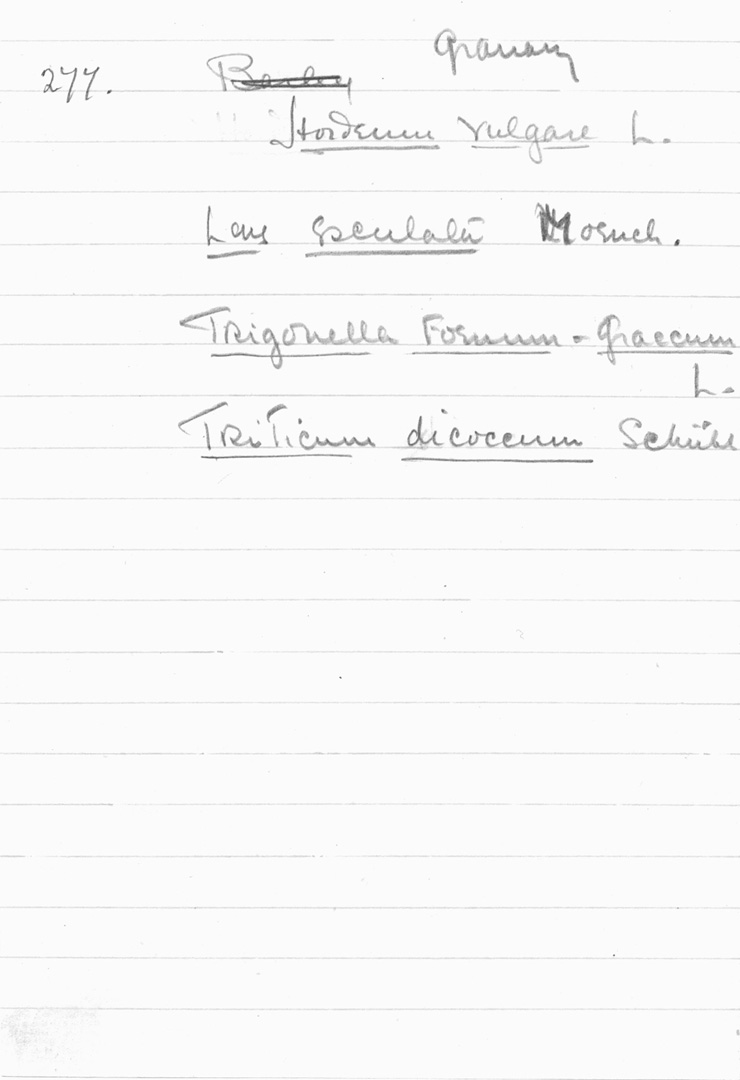 Granary
277. Barley
Hordeum vulgare L.
Lens esculenta Moench.
Trigonella Foenum-Graecum
L.
Triticum dicoccum Schübl